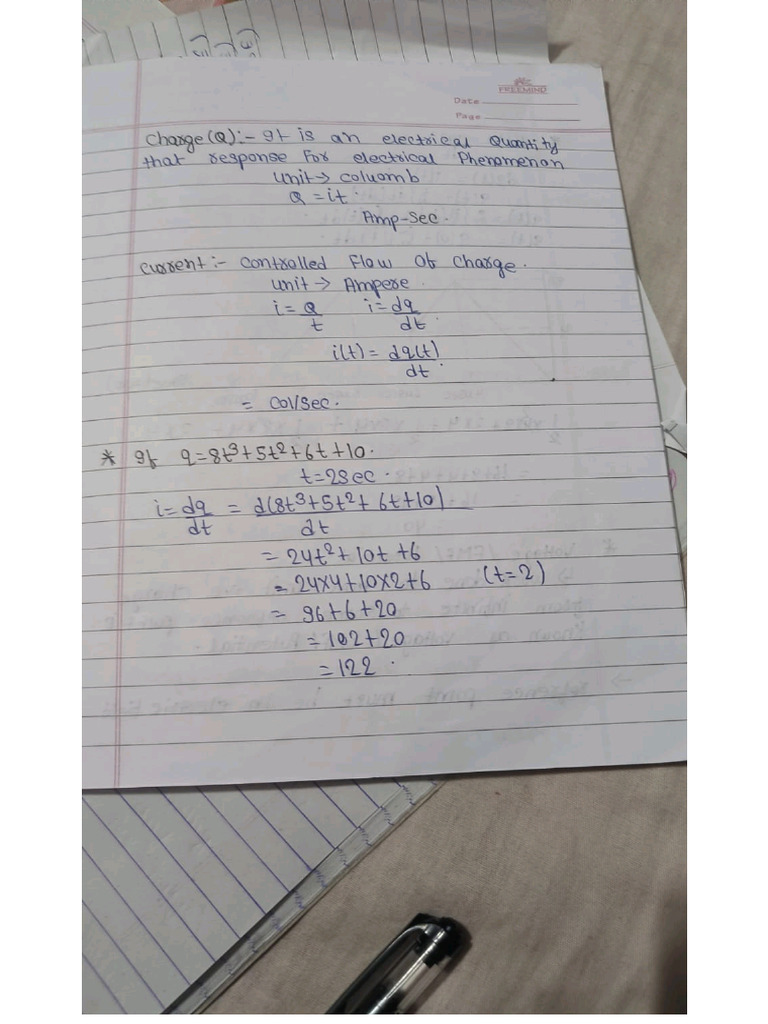 FREEMIND
Date
Page
Charge(Q):- It is an electrical Quantity
that response for electrical Phenomenon
unit → coluomb
Q = it.
Amp-Sec.
Current:- Controlled Flow Of Charge.
unit → Ampere.
i = Q/t i = dq/dt.
i(t) = dq(t)/dt.
= Col/Sec.
* If q=8t³+5t²+6t+10.
t=2sec.
i = dq/dt = d(8t³+5t²+6t+10)/dt
= 24t²+10t+6
= 24×4+10×2+6 (t=2)
= 96+6+20
= 102+20
= 122.